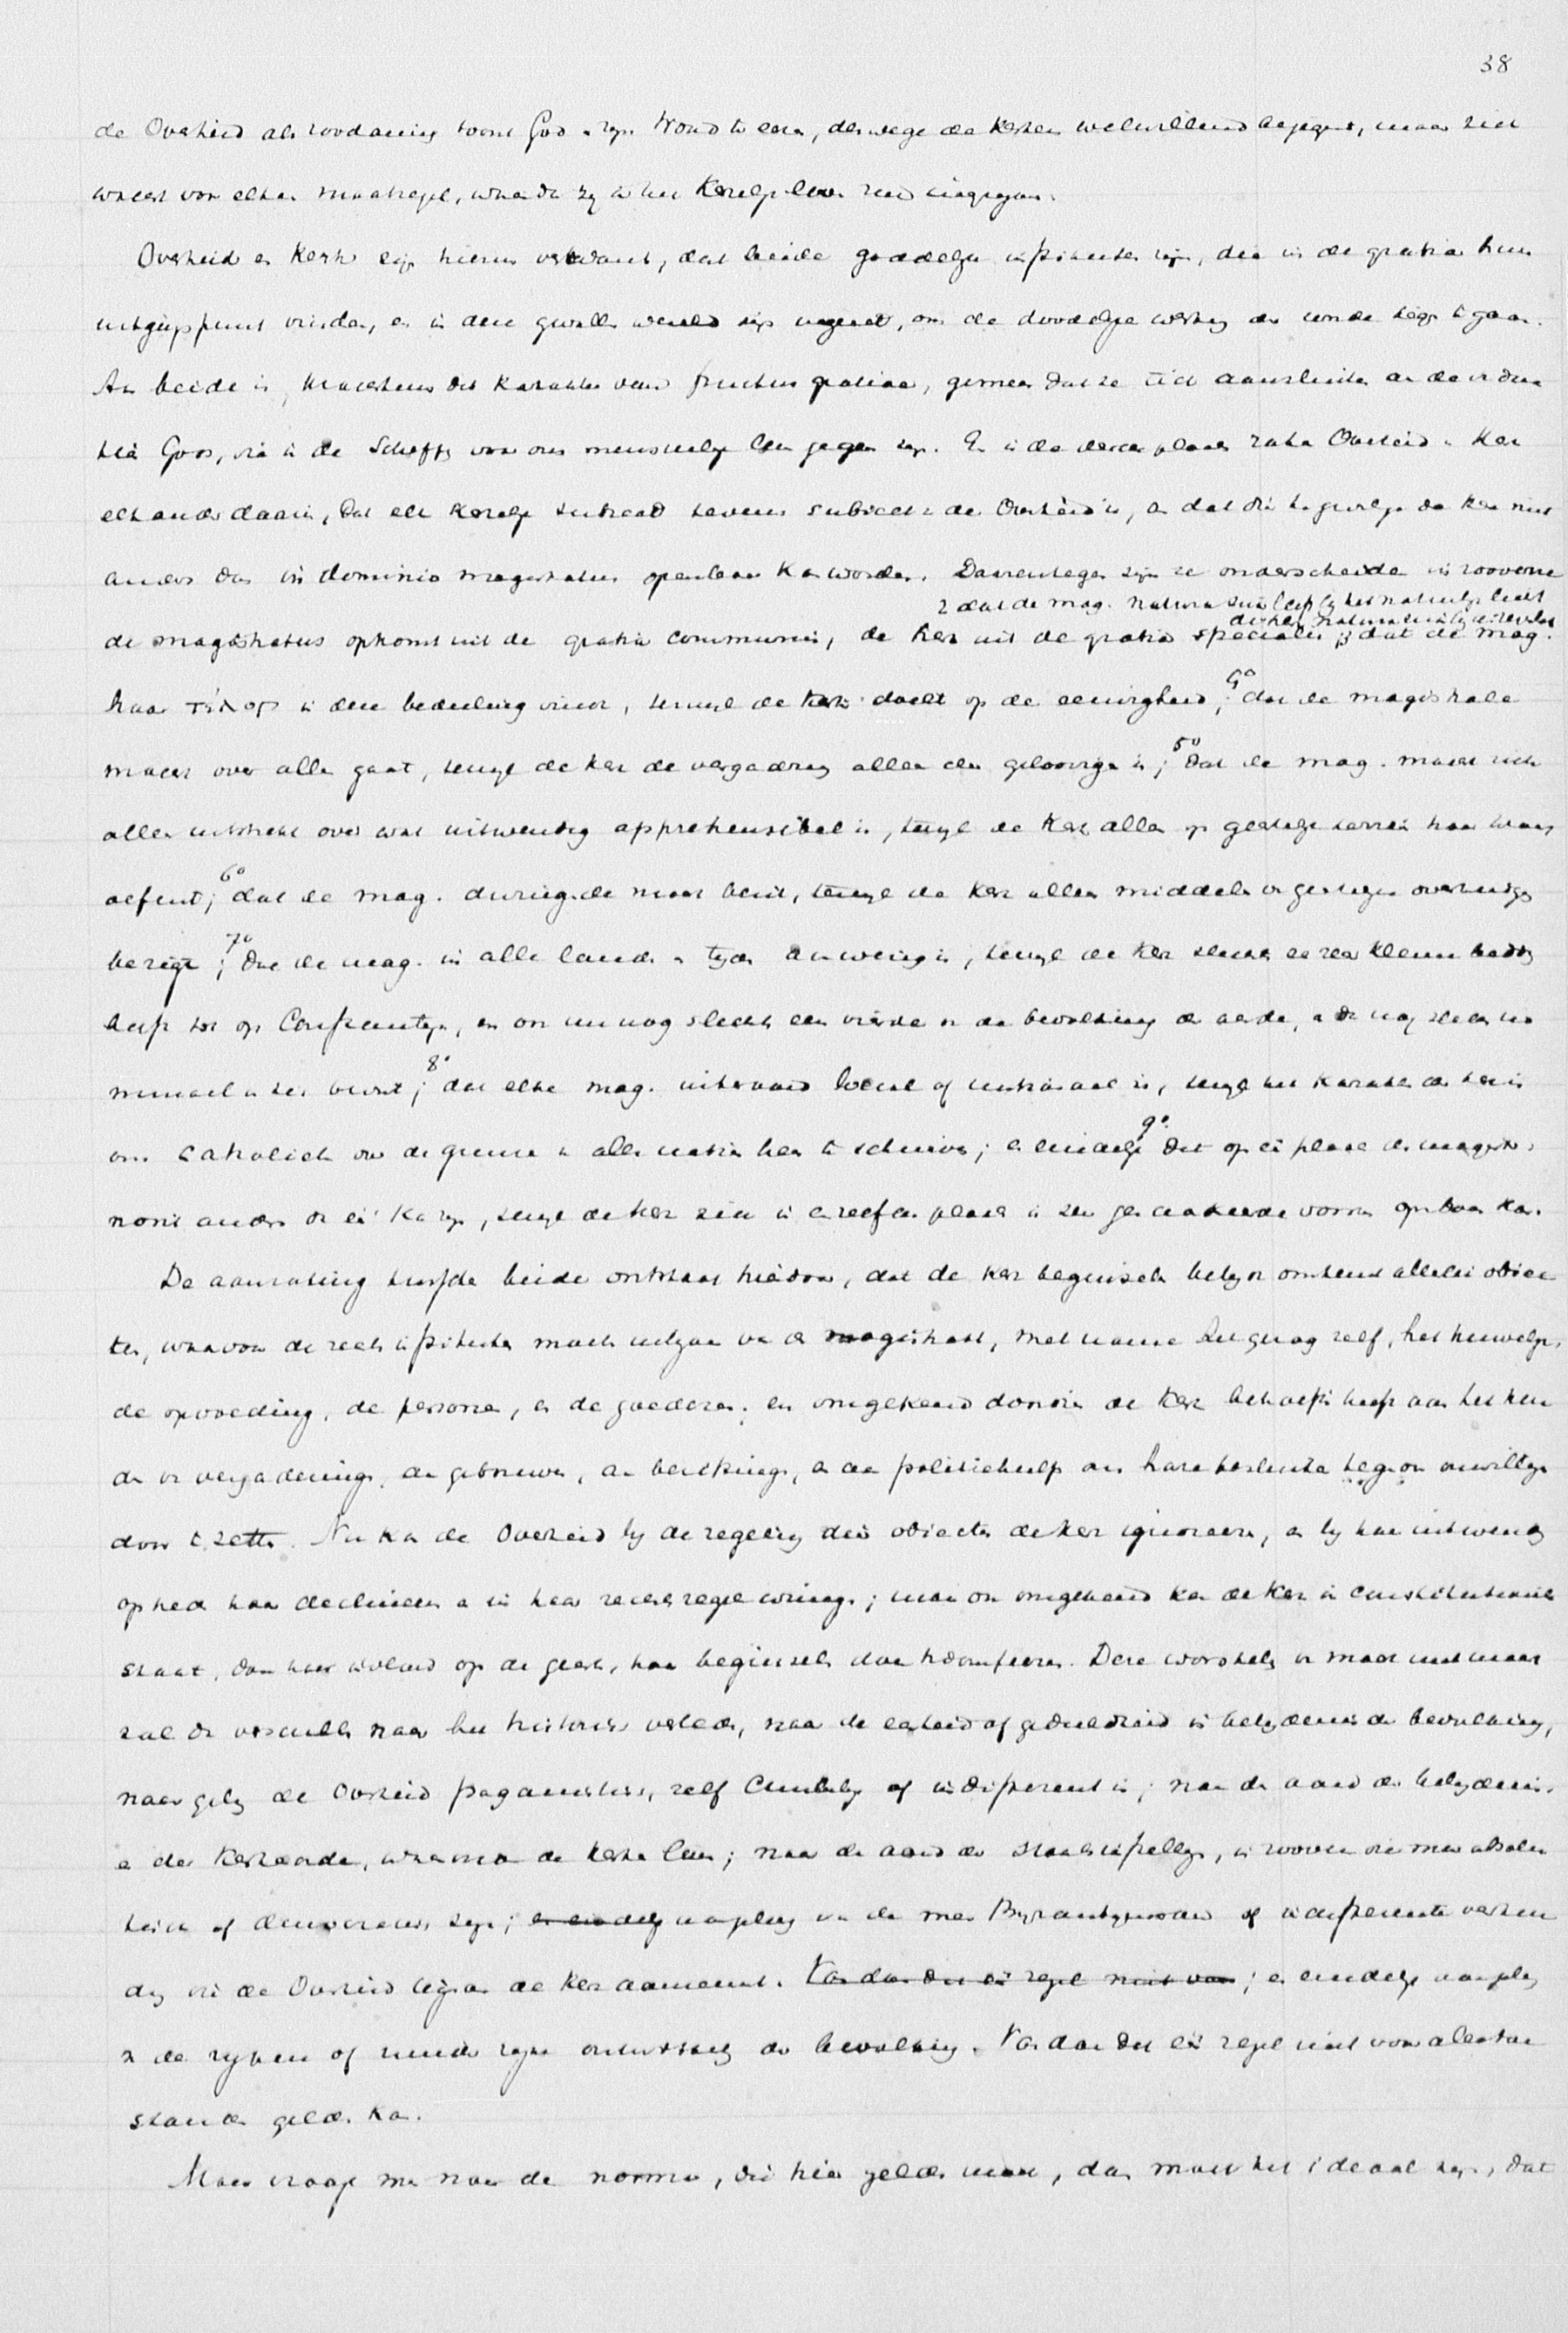 38
de Overheid als zoodanig toont God en zijn Woord te eeren, derwege de Kerken welwillend bejegent, maar zich
wacht voor elken maatregel, waardoor zij in het Kerkelijk leven zou ingrijpen.
Overheid en Kerk zijn hierin verwant, dat beide goddelijke instituten zijn, die in de gratia hun
uitgangspunt vinden, en in deze gevallen wereld zijn ingezet, om de doodelijke werking der zonde tegen te gaan.
Aan beide is, krachtens dit karakter van fructus gratiae, gemeen dat ze zich aansluiten aan de ordinan
tiën Gods, die in de Schepping voor ons menschelijk leven gegeven zijn. En in de derde plaats raken Overheid en Kerk
elkander daarin, dat elk Kerkelijk tevens subject der Overheid is, en dat dientengevolge de Kerk niet
anders dan in dominio magistratus openbaar kan worden. Daarentegen zijn ze onderscheiden in zooverre
2 dat de mag. naturâ suâ leeft bij het natuurlijk licht
de Kerk naturâ suâ bij de
de magistratus opkomt uit de gratia communis, de Kerk uit de gratia specialis; 3 dat de mag.
haar τέλος in deze bedeeling vindt, terwijl de Kerk doelt op de eeuwigheid; 4° dat de magistrale
macht over allen gaat, terwijl de Kerk de vergadering alleen der geloovigen is; 5° dat de mag. macht zich
alleen uitstrekt over wat uitwendig apprehensibel is, terwijl de Kerk alleen op geestelijk terrein haar macht
oefent; 6° dat de mag. dwingende macht bezit, terwijl de Kerk alleen middelen van geestelijke overtuiging
bezigt; 7° dat de mag. in alle landen en tijden aanwezig is, terwijl de Kerk slechts een zeer kleine bedding
heeft tot op Constantijn, en ook nu nog slechts een vierde van de bevolking der aarde, en dan nog slechts
nominaal in zich bevat; 8° dat elke mag. uiteraard locaal of nationaal is, terwijl het karakter der Kerk is
om catholiek over de grenzen van alle natiën heen te schuiven; en eindelijk 9° dat op één plaats de magistr.
nooit anders dan één kan zijn, terwijl de Kerk zich in eenzelfde plaats in zeer geschakeerde vormen openbaren kan.
De aanraking tusschen beide ontstaat hierdoor, dat de Kerk beginselen belijdt omtrent allerlei objec
ten, waarvoor de rechtsinstituten moeten uitgaan van de magistraat, met name het gezag zelf, het huwelijk,
de opvoeding, de personen, en de goederen; en omgekeerd doordien de Kerk behoefte heeft aan het hou
den van vergaderingen, aan gebouwen, aan bezittingen, en aan politiehulp om hare besluiten tegen onwilligen
door te zetten. Nu kan de Overheid bij de regeling dezer objecten de Kerk ignoreeren, en bij haar uitwendig
optreden haar declineeren in haar rechtsregeleering; maar ook omgekeerd kan de Kerk in constitutioneele
staat, door haar invloed op de geesten, haar beginselen doen triomfeeren. Deze worsteling van macht met macht
zal dan verschillen naar het historisch verleden, naar de eenheid of gedeeldheid in belijdenis der bevolking,
naar gelang de Overheid paganistisch, zelf Christelijk of indifferent is; naar den aard der belijdenis,
en der Kerkenorde, waarvan de Kerken leven; naar den aard der staatsinstelling, in zooverre die meer absolu
tisch of democratisch zijn; en eindelijk naar gelang van de meer Byzantijnsche of indifferente verhou
ding die de Overheid tegenover de Kerk aanneemt. Vandaar dat één regel niet voor; en eindelijk naar gelang
van de rijpere of minder rijpe ontwikkeling der bevolking. Vandaar dat één regel niet voor alle toe
standen gelden kan.
Maar vraagt men naar de norma, die hier gelden moet, dan moet het ideaal zijn, dat